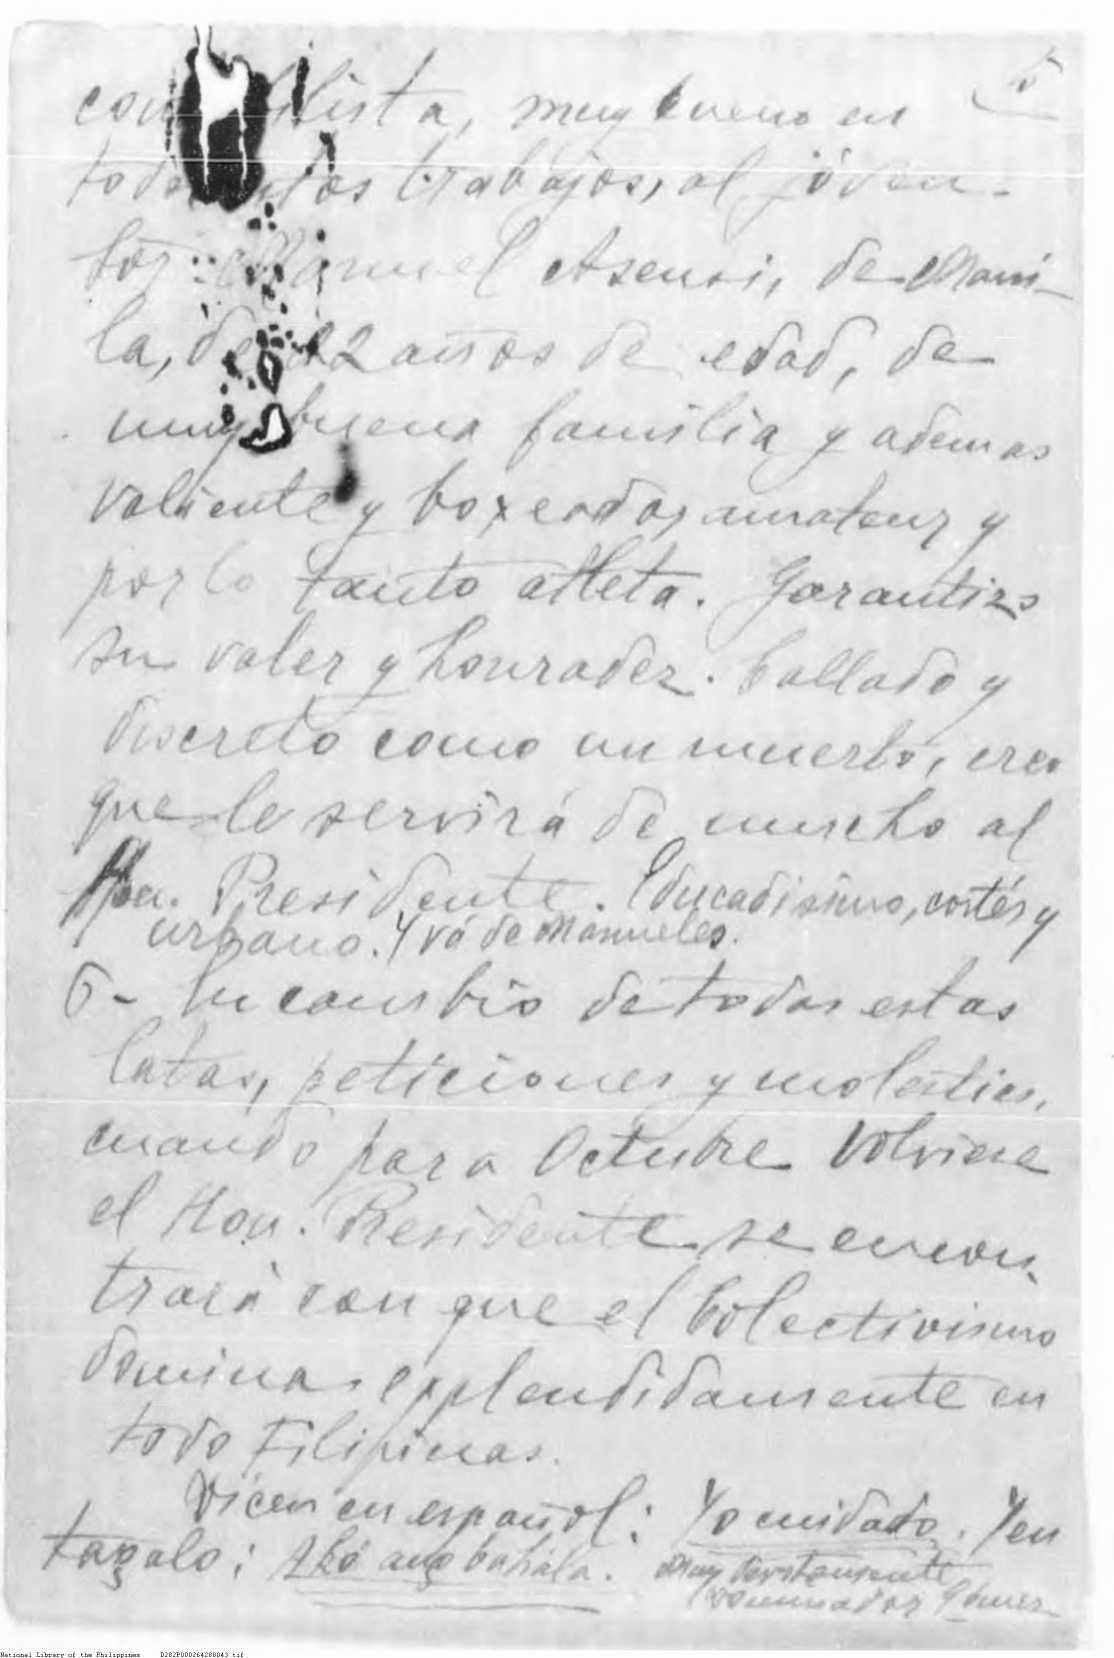 5
muy bueno en
trabajos, al jóven-
Manuel Asensi, de Mani-
la, de 22 años de edad, de
muy buena familia y ademas
valiente y boxeador amateur y
por lo tanto atleta. Garantizo
su valer y honradez. Callado y
discreto como un muerto, creo
que le servirá de mucho al
Hon. Presidente. Educadisimo, cortés y
urbano. Y vá de Manueles.
6- En cambio de todas estas
latas, peticiones y molestias,
cuando para Octubre volviese
el Hon. Presidente se encon-
trará con que el Colectivismo
domina esplendidamente en
todo Filipinas.
Dicen en español: Yo cuidado. Y en
tagalo: Akó ang bahala. Muy
Gomez
National Library of the Philippines D282P000264280043.tif